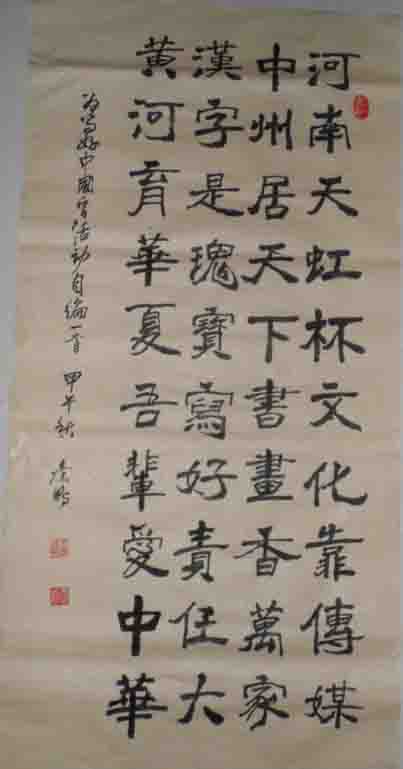 河南天虹杯文化靠傳媒
中州居天下書畫香萬家
漢字是瑰寶寫好責任大
黃河育華夏吾輩愛中華
为写好中國字活动自编一首 甲午秋